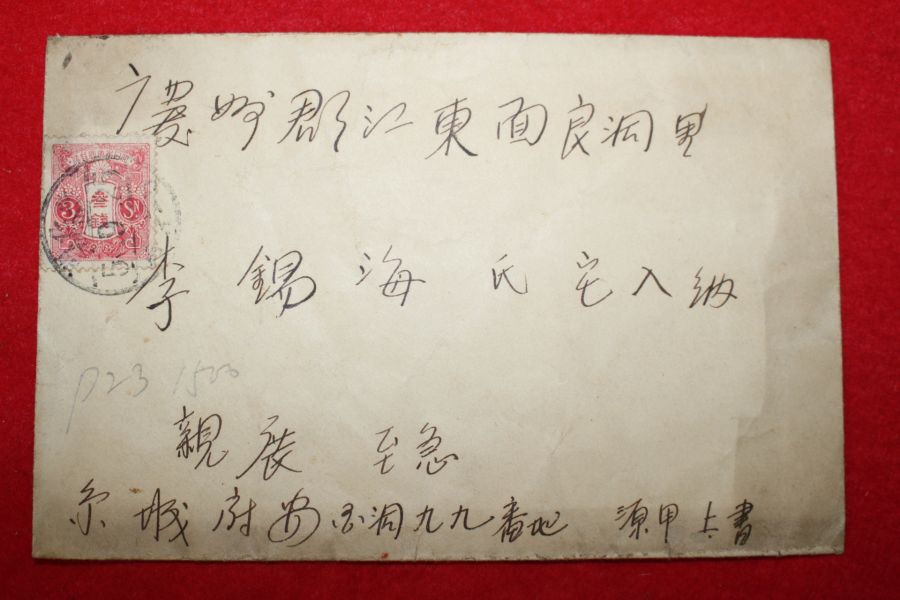 慶州郡江東面良洞里
3 参銭 Sⁿ
李錫海氏宅入納
P23 1500
親展 至急
京城府安国洞九九番地 源甲上書